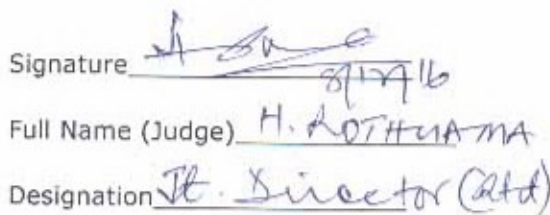 Signature
8/12/16
Full Name (Judge) H. ROTHUAMA
Designation Jt. Director (Rtd)